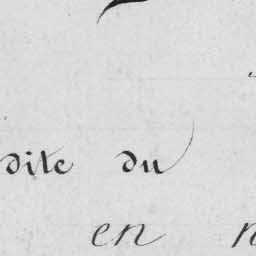 dite du
en